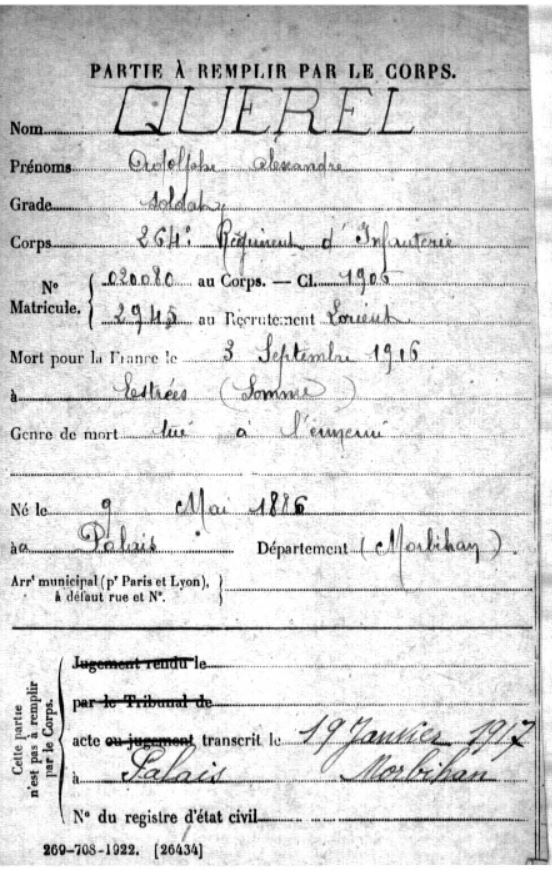 PARTIE À REMPLIR PAR LE CORPS.
Nom QUEREL
Prénoms Adolphe Alexandre
Grade Soldat
Corps 264e Régiment d'Infanterie
N° Matricule. 020080 au Corps. — Cl. 1906
2945 au Recrutement Lorient
Mort pour la France le 3 Septembre 1916
à Estrées (Somme)
Genre de mort tué à l'ennemi
Né le 9 Mai 1886
à Palais Département (Morbihan).
Arrt municipal (pr Paris et Lyon),
à défaut rue et N°.
Cette partie
n'est pas à remplir
par le Corps.
Jugement rendu le
par le Tribunal de
acte ou jugement transcrit le 19 Janvier 1917
à Palais Morbihan
N° du registre d'état civil
269-708-1922. [26434]